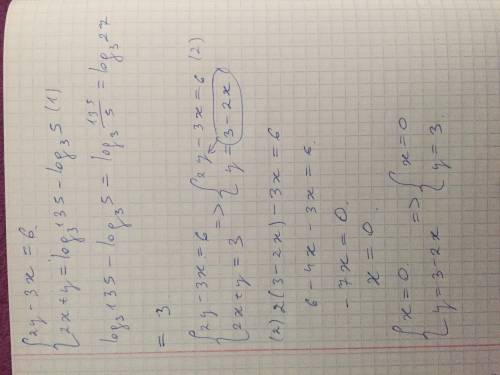 {2y - 3x = 6
{2x + y = log₃135 - log₃5 (1)
log₃135 - log₃5 = log₃ 135/5 = log₃27
= 3
{2y - 3x = 6 => {2y - 3x = 6 (2)
{2x + y = 3 {y = 3 - 2x
(2) 2(3 - 2x) - 3x = 6
6 - 4x - 3x = 6.
- 7x = 0.
x = 0.
{x = 0. => {x = 0
{y = 3 - 2x {y = 3.